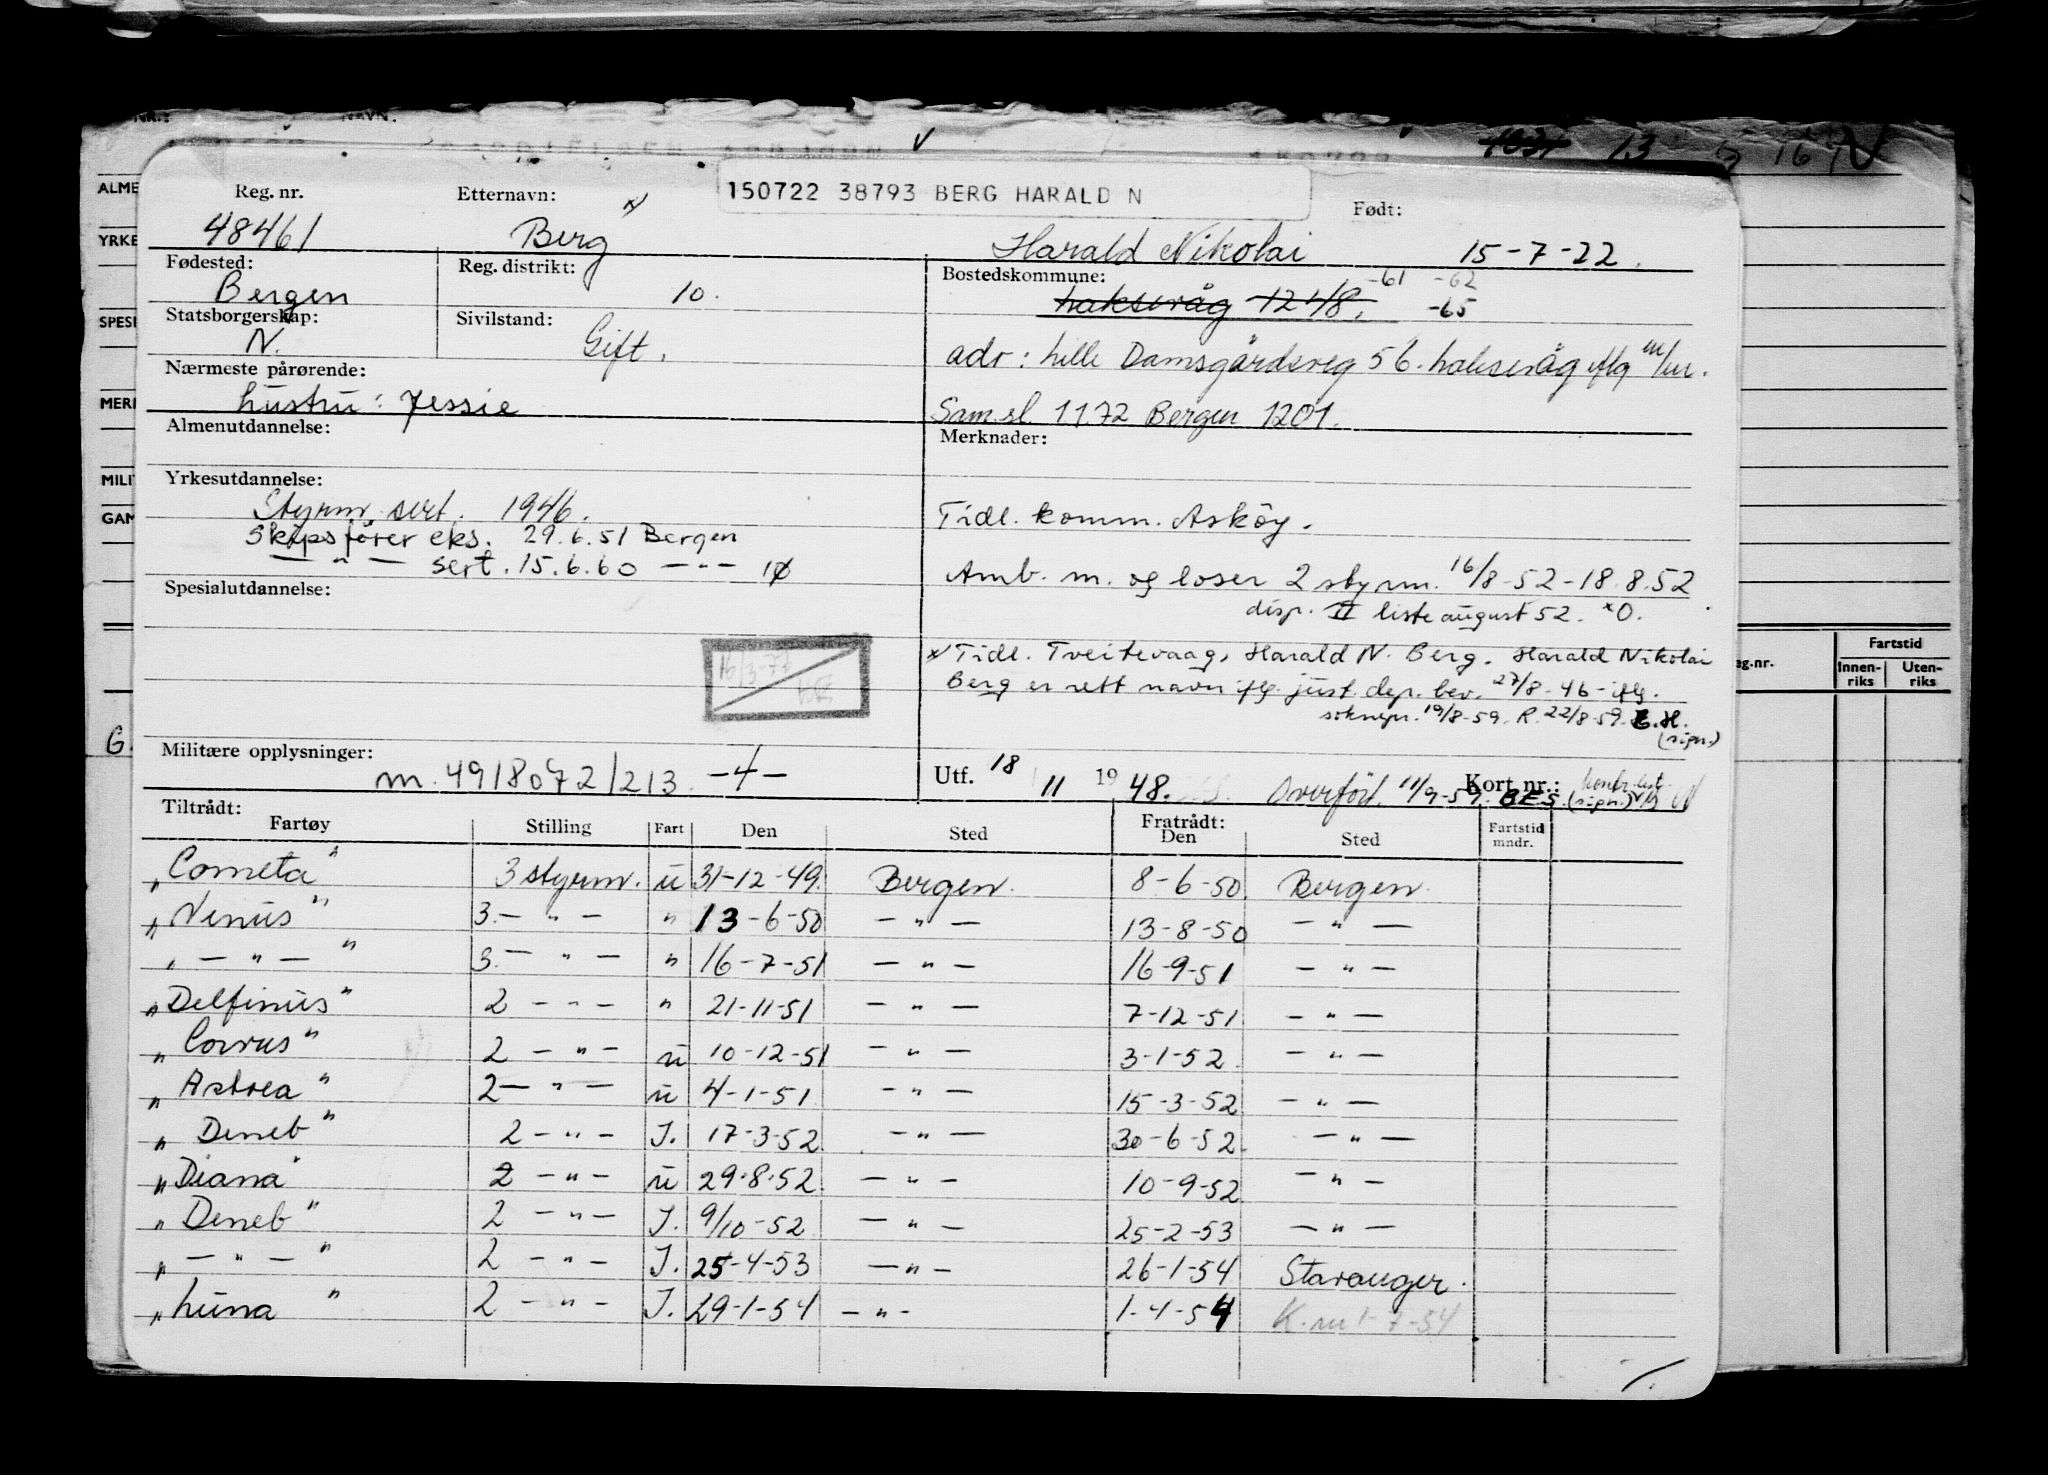 NR.: NAVN:
13
150722 38793 BERG HARALD N
Reg. nr. Etternavn: Født:
48461 Berg Harald Nikolai 15-7-22.
Fødested: Reg. distrikt: Bostedskommune:
-61 -62
Bergen 10. Laksevåg 1248, -65
Statsborgerskap: Sivilstand:
N. Gift.
adr: Lille Damsgårdsveg 56. Laksevåg iflg m/m.
Nærmeste pårørende:
hustru: Jessie
Sam.sl. 1172 Bergen 1201.
Almenutdannelse: Merknader:
Yrkesutdannelse:
Styrm. sert. 1946.
Skipsfører eks. 29.6.51 Bergen
— " — sert. 15.6.60 — " — 10
Tidl. komm. Asköy.
Amb. m. og loser 2 styrm. 16/8-52-18.8.52
disp. II liste august 52. *0.
Spesialutdannelse:
x/ Tidl. Tveitevaag, Harald N. Berg. Harald Nikolai
Berg er rett navn iflg. just. dep. bev. 27/8-46 - iflg.
søknspr. 19/8-59. R. 22/8-59. E.H.
(sign.)
Militære opplysninger:
m. 4918072/213. -4-
Utf. 18 11 1948. Overført 11/9-59. BES. (sign.) Kort nr.:
Tiltrådt: Fratrådt:
Fartøy Stilling Fart Den Sted Den Sted Fartstid mndr.
"Cometa" 3 styrm. u 31-12-49. Bergen. 8-6-50. Bergen.
"Venus" 3. — " — " 13-6-50 — " — 13-8-50 — " —
" — " — " 3. — " — " 16-7-51 — " — 16-9-51 — " —
"Delfinus" 2 — " — " 21-11-51 — " — 7-12-51 — " —
"Corvus" 2 — " — u 10-12-51 — " — 3-1-52. — " —
"Astrea" 2 — " — u 4-1-51. — " — 15-3-52 — " —
"Deneb" 2 — " — I. 17-3-52. — " — 30-6-52. — " —
"Diana" 2 — " — u 29.8.52. — " — 10-9-52. — " —
"Deneb" 2 — " — I. 9/10-52 — " — 25-2-53 — " —
" — " — " 2 — " — I. 25-4-53 — " — 26-1-54 Stavanger.
"Luna" 2 — " — I. 29-1-54 — " — 1-4-54 K. m 1-7-54
ALME
YRKE
SPESI
MERK
MILIT
GAM
G.
eg.nr. Fartstid
Innen-riks Uten-riks